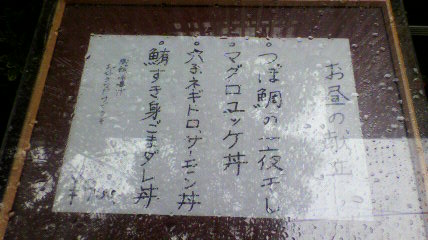 お昼の献立
。つぼ鯛の一夜干し
。マグロユッケ丼
。穴子ネギトロ、サーモン丼
。鮪すき身ごまダレ丼